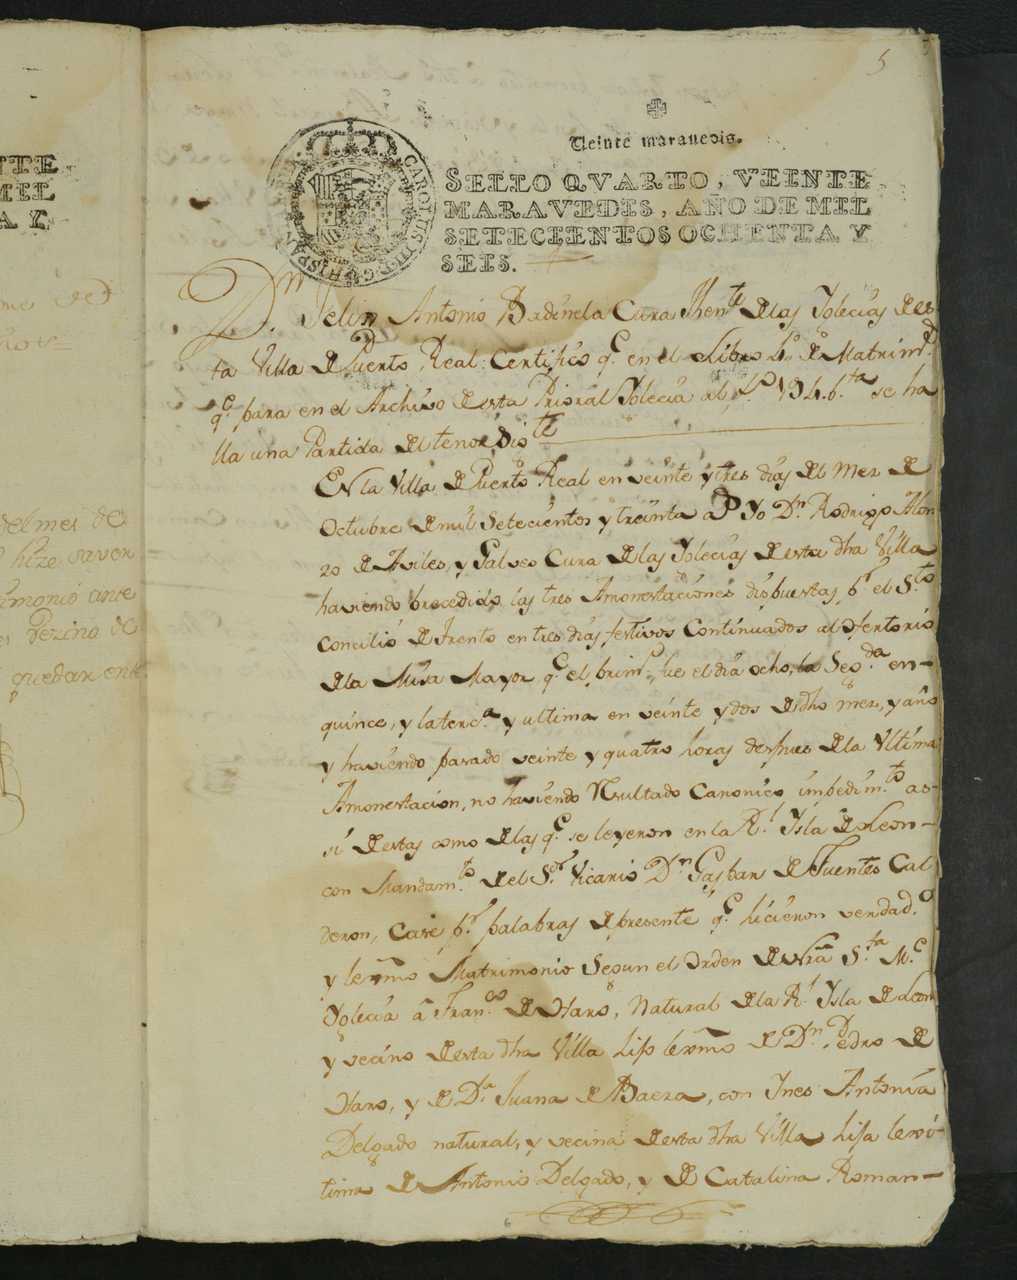 5
Veinte maravedis.
SELLO QVARTO, VEINTE
MARAVEDIS, AÑO DE MIL
SETECIENTOS OCHENTA Y
SEIS.
CAROLUS III D G HISPAN
Dn. Felix Antonio Badinela Cura Thente. de las Yglecias de es
ta Villa de Puerto Real: Certifico qe. en el Libro 4o. de Matrimos.
qe. para en el Archivo de esta Prioral Yglecia al fo. 194. bta. se ha
lla una Partida del tenor sigte.
En la Villa de Puerto Real en veinte y tres dias del Mes de
Octubre de mil Setecientos y treinta as. Yo Dn. Rodrigo Alon
zo de Aviles, y Galves Cura de las Yglecias de esta dha Villa
haviendo procedido las tres Amonestaciones dispuestas pr. el Sto.
Concilio de Trento en tres dias festivos Continuados al Ofertorio
de la Missa Mayor qe. el primo. fue el dia ocho, la Segda. en
quince, y la terca. y ultima en veinte y dos de dho mes, y año
y haviendo pasado veinte y quatro horas despues de la Ultima
Amonestacion, no haviendo Resultado Canonico impedimto. as-
si de estas como de las qe. se leyeron en la Rl. Ysla de Leon
con Mandamto. del Sor. Vicario Dn. Gaspar de Fuentes Cal
deron, Casé pr. palabras de presente qe. hicieron verdado.
y lexmo Matrimonio Segun el Orden de Nra Sta. Me.
Yglecia à Franco. de Haro, Natural de la Rl. Ysla de Leon
y vecino de esta dha Villa hijo lexmo de Dn. Pedro de
Haro, y de Da. Juana de Baeza, con Ines Antonia
Delgado natural, y vecina de esta dha Villa hija lexi-
tima de Antonio Delgado, y de Catalina Roman
NTE
MIL
A Y
del mes de
hize saver
imonio ante
Vezino de
quedar ente